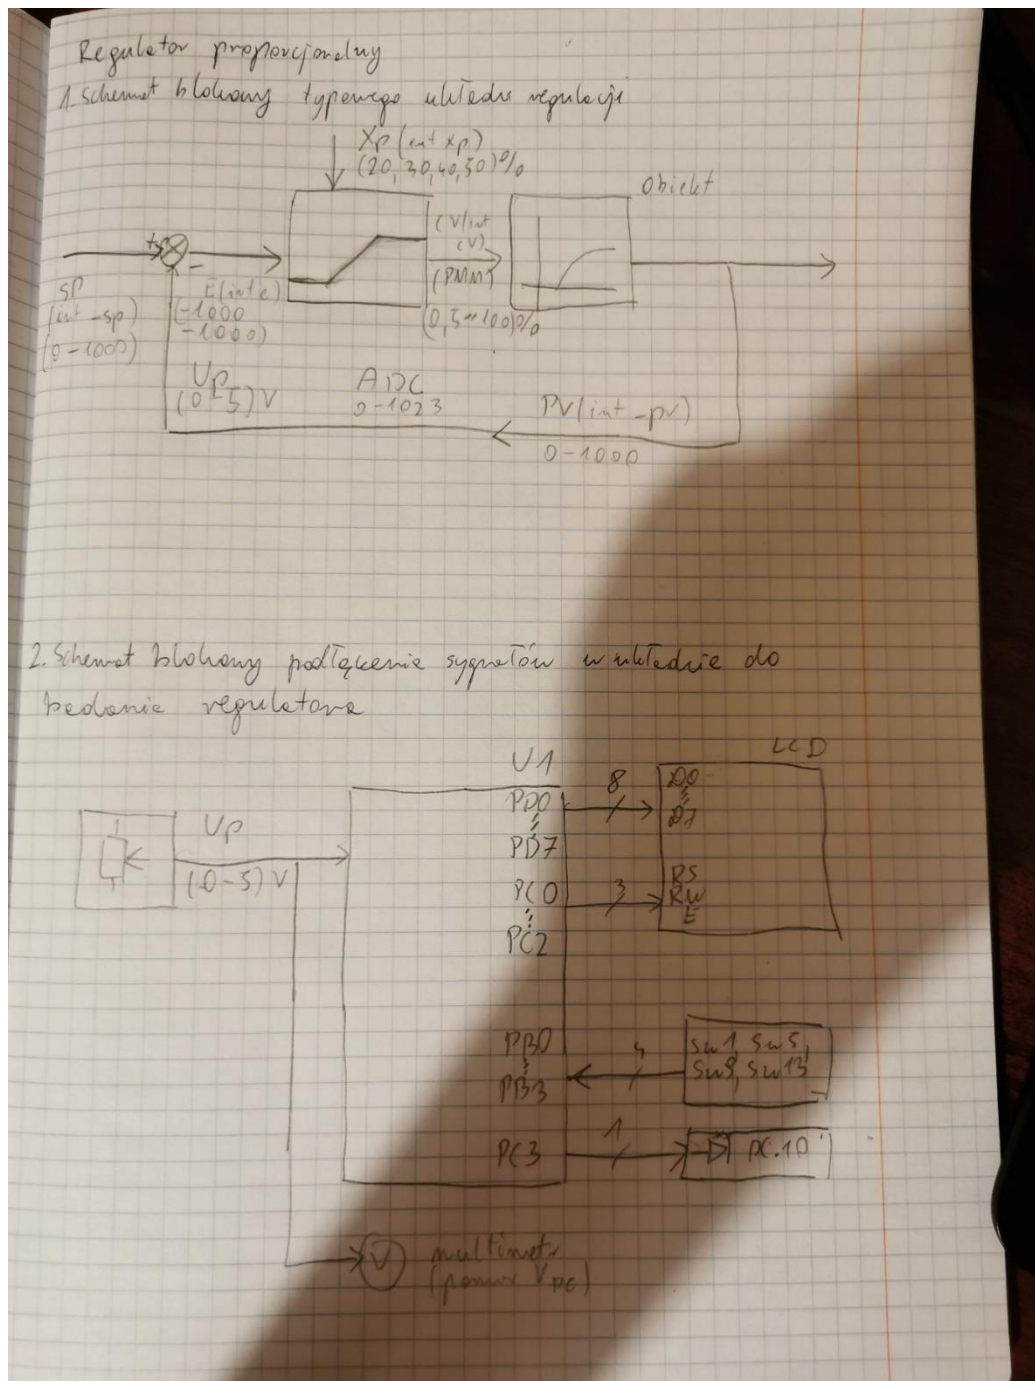 Regulator proporcjonalny
1. Schemat blokowy typowego układu regulacji
Xp (int xp)
(20, 30, 40, 50)%
Obiekt
(V/int
(V)
(PMM)
(0,5÷100)%
+
-
SP
(int _sp)
(0-1000)
E(int e)
(-1000
-1000)
Up
(0-5)V
ADC
0-1023
PV(int _pv)
0-1000
2. Schemat blokowy podłączenia sygnałów w układzie do
badania regulatora
U1
LCD
PD0
PD7
8
D0
D7
Up
(0-5)V
PC0
PC2
3
RS
RW
E
PB0
PB3
4
Sw1, Sw5,
Sw9, Sw13
PC3
1
V
multimetr
(pomiar VDC)